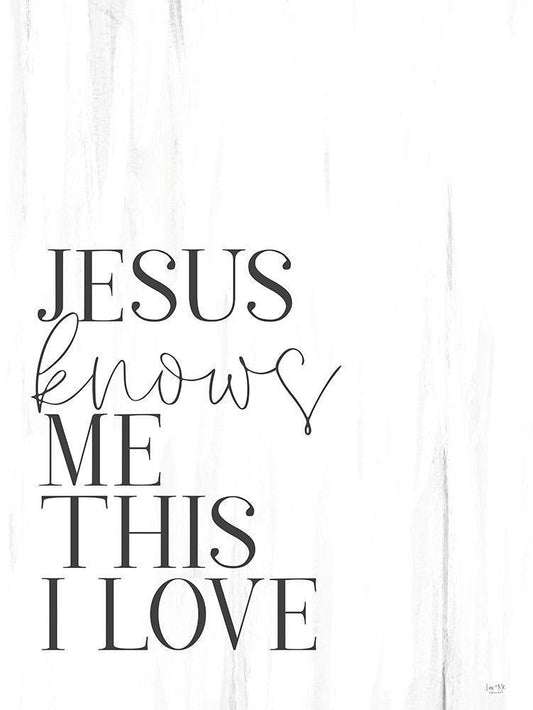 JESUS
knows
ME
THIS
I LOVE